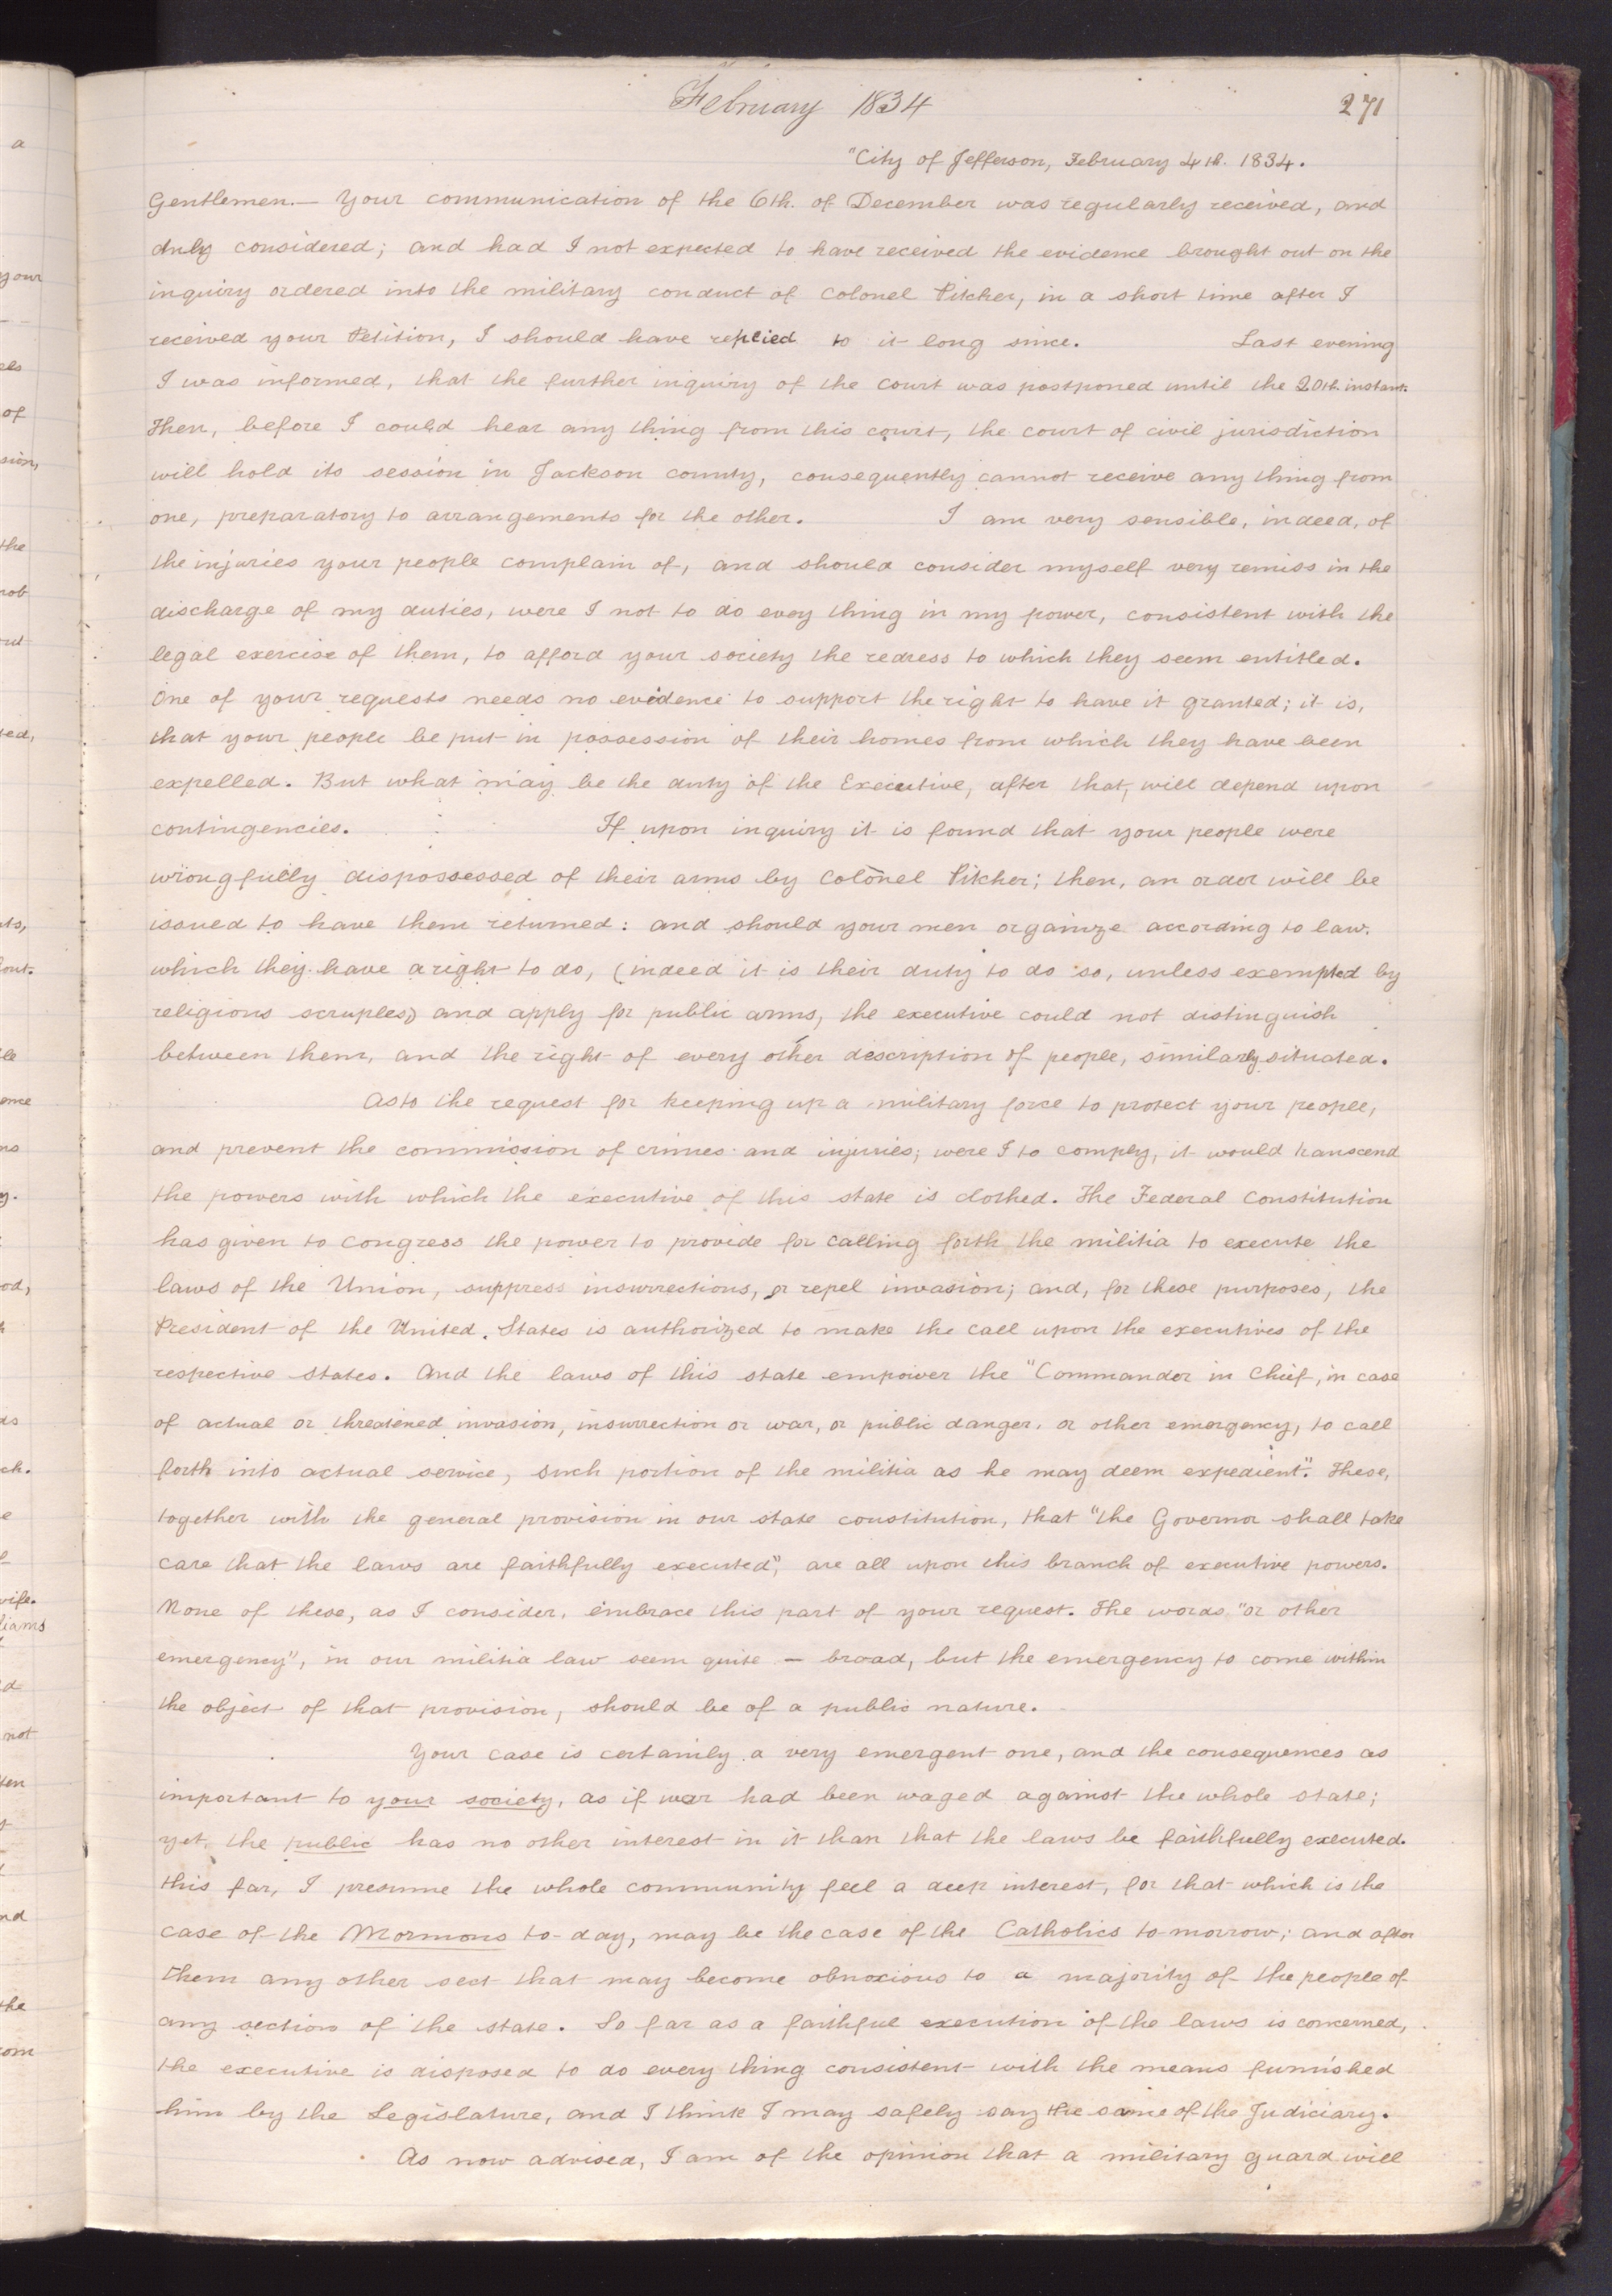 February 1834
271
"City of Jefferson, February 4th. 1834.
Gentlemen.— Your communication of the 6th. of December was regularly received, and
duly considered; and had I not expected to have received the evidence brought out on the
inquiry ordered into the military conduct of Colonel Pitcher, in a short time after I
received your Petition, I should have replied to it long since. Last evening
I was informed, that the further inquiry of the court was postponed until the 20th. instant.
Then, before I could hear any thing from this court, the court of civil jurisdiction
will hold its session in Jackson county, consequently cannot receive any thing from
one, preparatory to arrangements for the other. I am very sensible, indeed, of
the injuries your people complain of, and should consider myself very remiss in the
discharge of my duties, were I not to do evey thing in my power, consistent with the
legal exercise of them, to afford your society the redress to which they seem entitled.
One of your requests needs no evidence to support the right to have it granted; it is,
that your people be put in possession of their homes from which they have been
expelled. But what may be the duty of the Executive, after that, will depend upon
contingencies. If upon inquiry it is found that your people were
wrongfully dispossessed of their arms by Colonel Pitcher; then, an order will be
issued to have them returned: and should your men organize according to law,
which they have a right to do, (indeed it is their duty to do so, unless exempted by
religious scruples) and apply for public arms, the executive could not distinguish
between them, and the right of every other description of people, similarly situated.
As to the request for keeping up a military force to protect your people,
and prevent the commission of crimes and injuries; were I to comply, it would transcend
the powers with which the executive of this state is clothed. The Federal Constitution
has given to Congress the power to provide for calling forth the militia to execute the
laws of the Union, suppress insurrections, or repel invasion; and, for these purposes, the
President of the United States is authorized to make the call upon the executives of the
respective states. And the laws of this state empower the "Commander in Chief, in case
of actual or threatened invasion, insurrection or war, or public danger, or other emergency, to call
forth into actual service, such portion of the militia as he may deem expedient". These,
together with the general provision in our state constitution, that "the Governor shall take
care that the laws are faithfully executed", are all upon this branch of executive powers.
None of these, as I consider, embrace this part of your request. The words "or other
emergency", in our militia law seem quite — broad, but the emergency to come within
the object of that provision, should be of a public nature.
Your case is certainly a very emergent one, and the consequences as
important to your society, as if war had been waged against the whole state;
yet, the public has no other interest in it than that the laws be faithfully executed.
this far, I presume the whole community feel a deep interest, for that which is the
case of the Mormons to-day, may be the case of the Catholics to-morrow; and after
them any other sect that may become obnoxious to a majority of the people of
any section of the state. So far as a faithful execution of the laws is concerned,
the executive is disposed to do every thing consistent with the means furnished
him by the Legislature, and I think I may safely say the same of the Judiciary.
As now advised, I am of the opinion that a military guard will